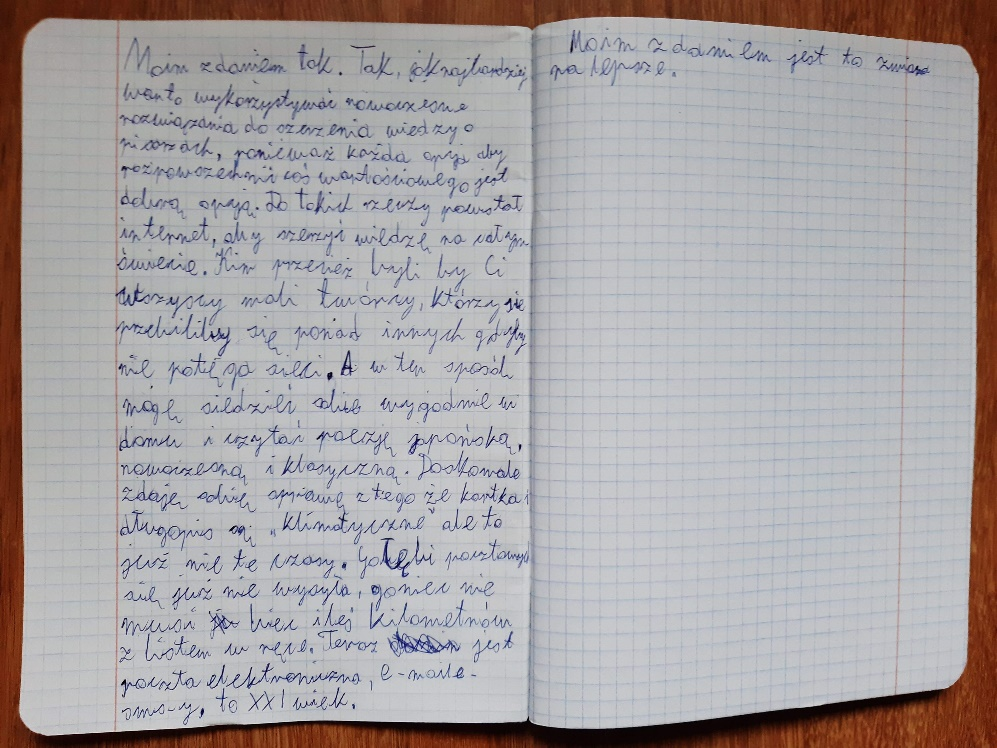 Moim zdaniem tak. Tak, jak najbardziej
warto wykożystywać nowoczesne
rozwiązania do szerzenia wiedzy o
pisarzach, ponieważ każda opcja aby
rozpowszechnić coś wartościowego jest
dobrą opcją. Do takich rzeczy powstał
internet, aby szerzyć wiedzę na cały
ówiecie. Kim przecież byli by Ci
wszyscy mali twórcy, którzy nie
przebiliby się ponad innych gdyby
nie potęga sieci. A w ten sposób
mogę siedzieć sobie wygodnie w
domu i czytać poezję japońską,
nowoczesną i klasyczną. Doskonale
zdaję sobię sprawę z tego że kartka i
długopis są „klimatyczne" ale to
już nie te czasy. Gołębi pocztowych
się już nie wysyła, goniec nie
musi biec ileś kilometrów
z listem w ręce. Teraz jest
poczta elektroniczna, e-maile
sms-y, to XXI wiek.
Moim zdaniem jest to zmiana
na lepsze.